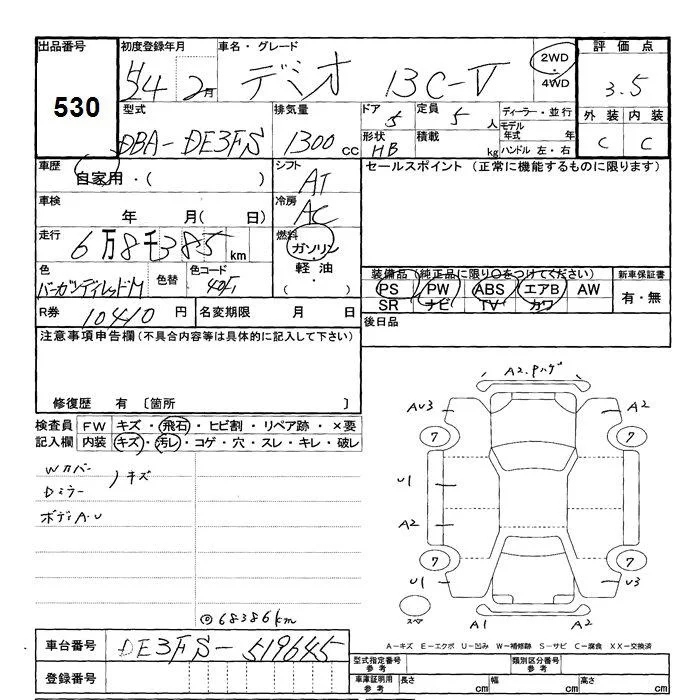 出品番号 初度登録年月 車名・グレード 2WD・4WD 評価点
530 2月 デミオ 13C-V 3.5
型式 排気量 ドア 定員 ディーラー・並行 外装 内装
DBA-DE3FS 1300cc 5 5人 モデル年式 年 C C
形状 積載 ハンドル 左・右
HB kg
車歴 シフト セールスポイント (正常に機能するものに限ります)
自家用・( ) AT
車検 冷房
年 月( 日) AC
走行 燃料
6万8千385km ガソリン・軽油・( )
色 色替 色コード 装備品(純正品に限り○をつけてください) 新車保証書
バーガンディレッドM PS PW ABS エアB AW 有・無
SR ナビ TV カワ
R券 10410円 名変期限 月 日 後日品
注意事項申告欄(不具合内容等は具体的に記入して下さい)
修復歴 有 〔箇所 〕
検査員 FW キズ・飛石・ヒビ割・リペア跡・×要
記入欄 内装 キズ・汚レ・コゲ・穴・スレ・キレ・破レ
Wカバー
Dミラー )キズ
ボディA.U
A2.Pハゲ
AU3 A2
7 7
U1
A2
7 7
U1 U3
スペア
A1 A2
◎68386km
A-キズ E-エクボ U-凹み W-補修跡 S-サビ C-腐食 XX-交換済
車台番号 DE3FS-519645
登録番号
型式指定番号 参考 類別区分番号 参考
車庫証明用 参考 長さ cm 幅 cm 高さ cm